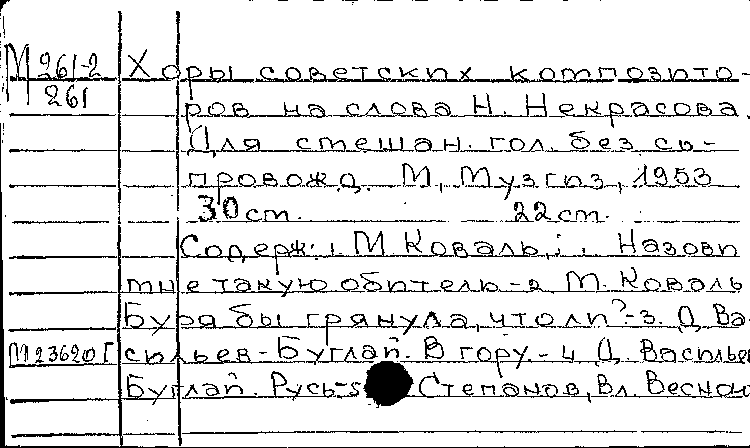 М 261-2
261
Хоры советских композито-
ров на слова Н. Некрасова.
Для смешан. гол. без со-
провожд. М, Музгиз, 1953
30 ст. 22 cm.
Содерж: 1 М Коваль. Назови
мне такую обитель - 2. М. Коваль
Буря бы грянула, что ли? - 3. Д. Ва-
М23620Г сильев-Буглай. В гору. - 4 Д. Васильев
Буглай. Русь - 5 Степанов, Вл. Весною